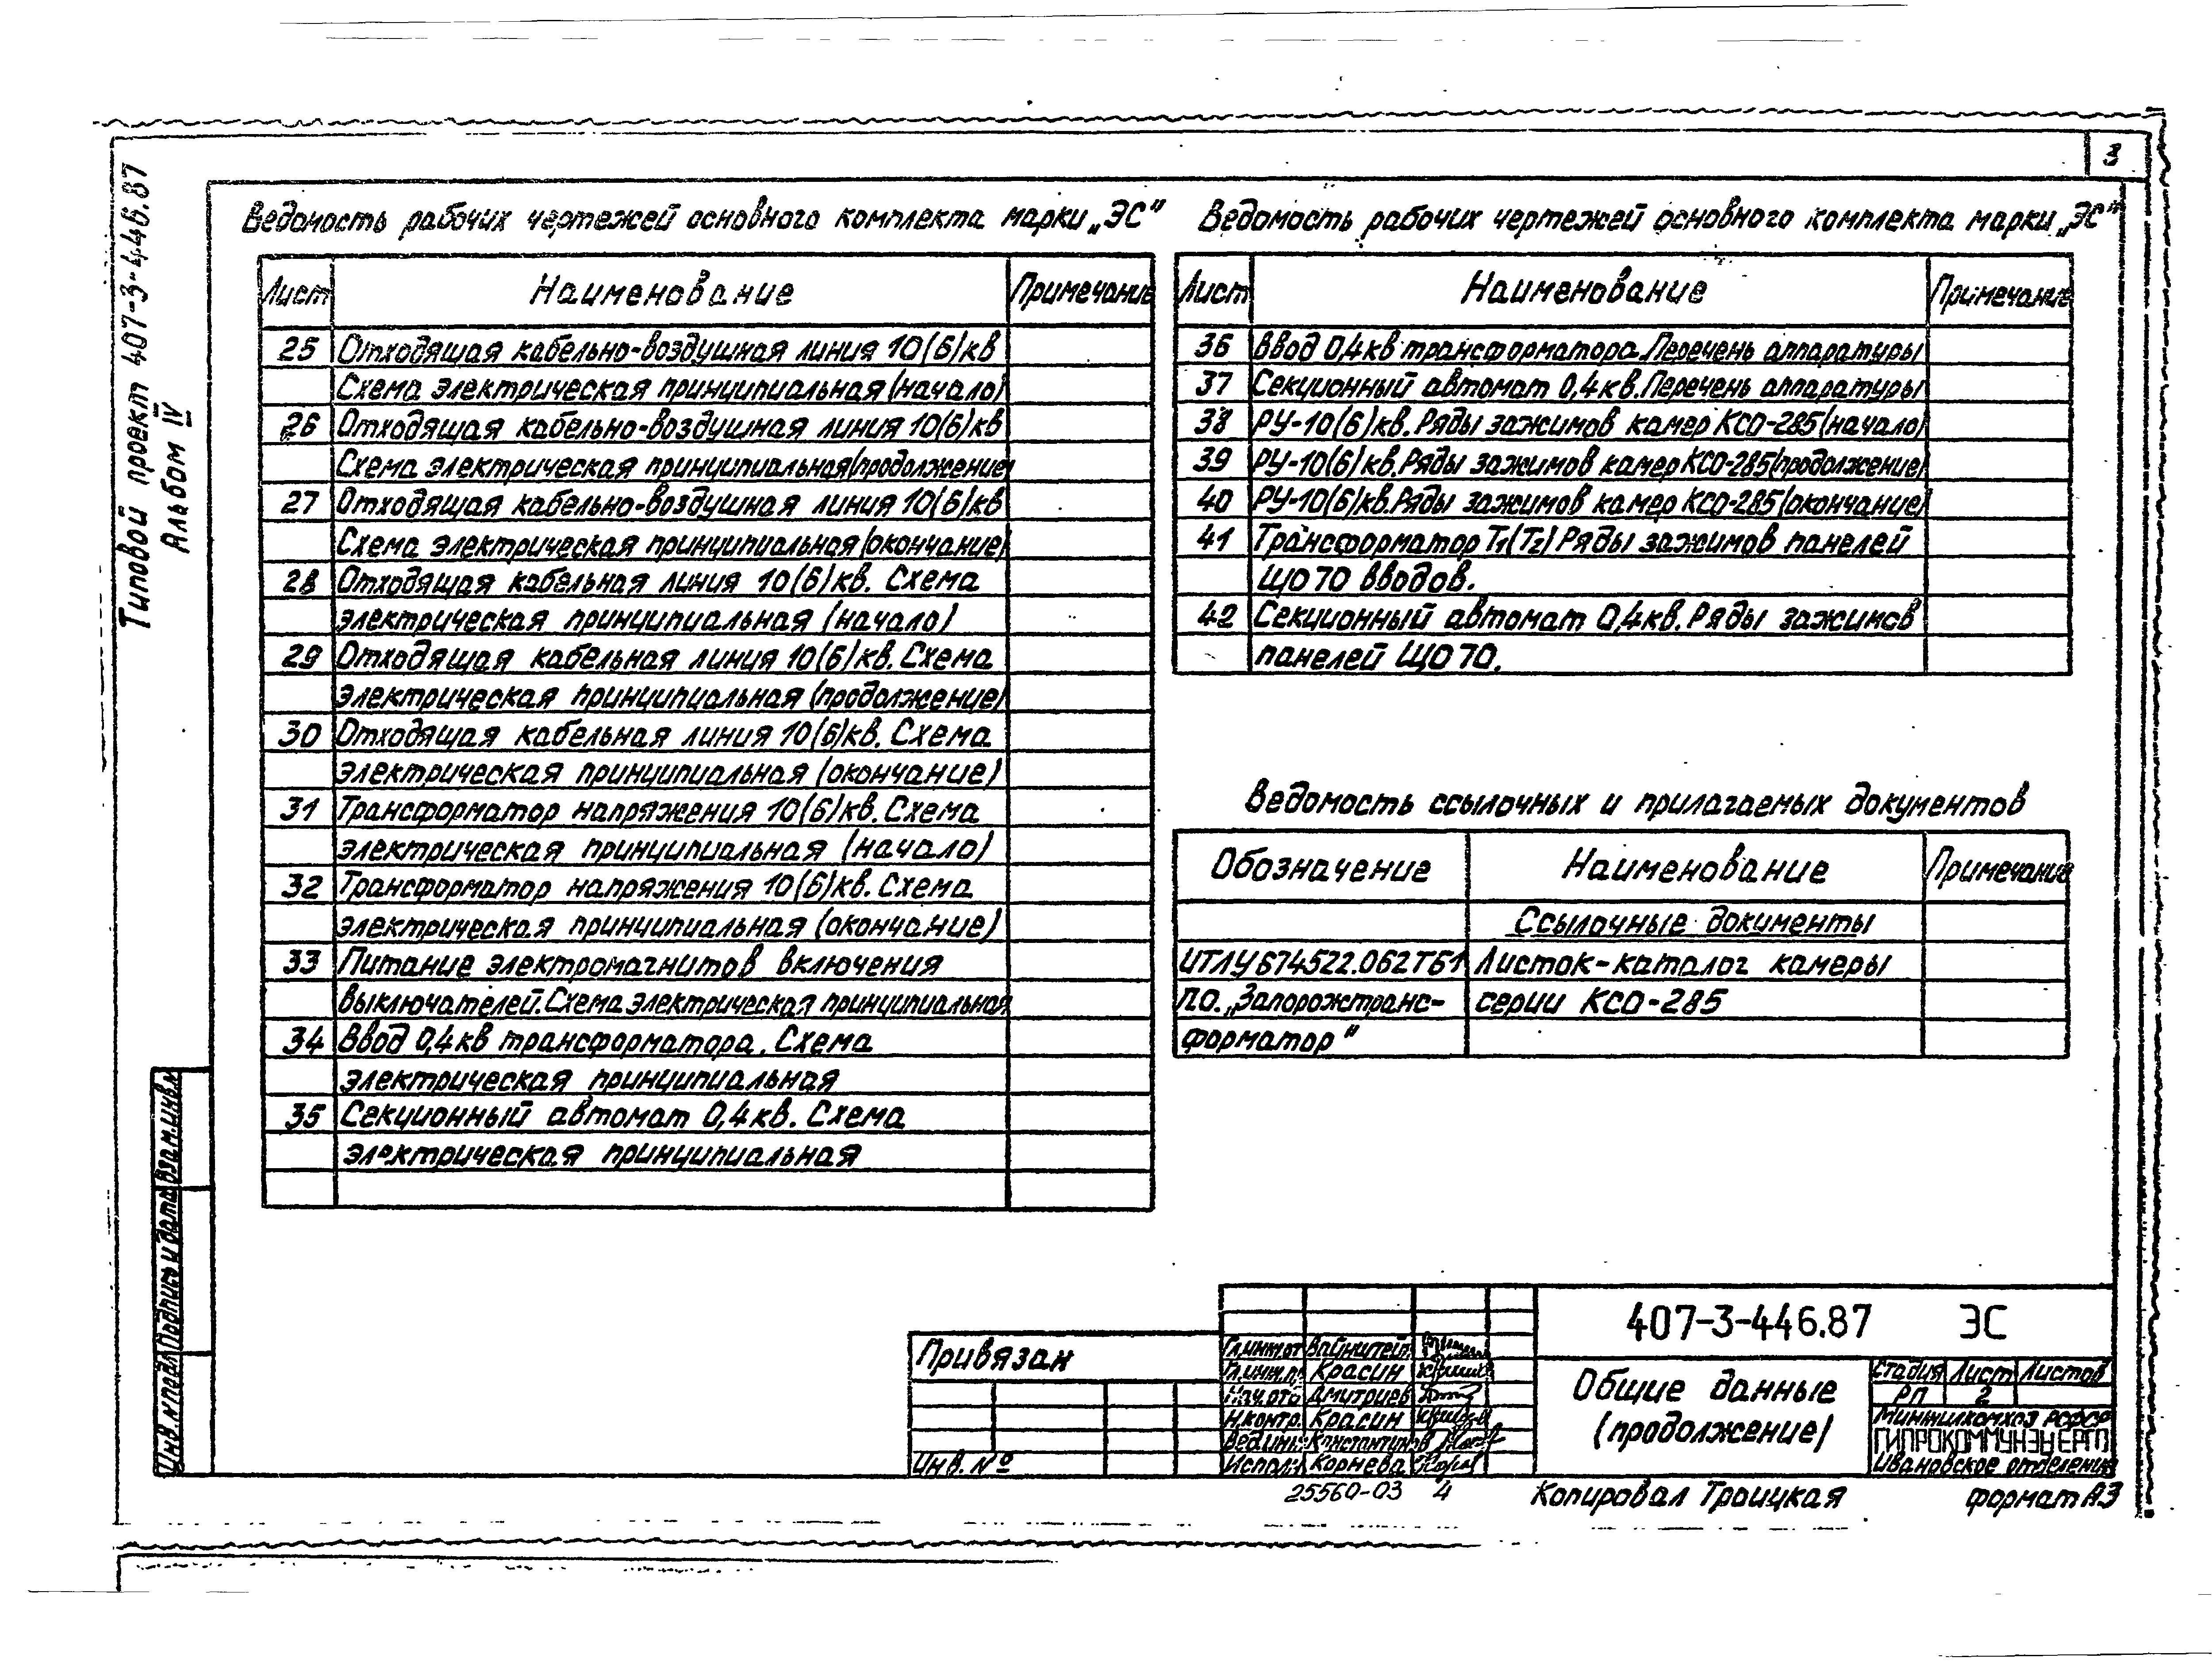 3
Типовой проект 407-3-446.87
Альбом IV
Ведомость рабочих чертежей основного комплекта марки „ЭС"
Лист Наименование Примечание
25 Отходящая кабельно-воздушная линия 10(6)кв
Схема электрическая принципиальная (начало)
26 Отходящая кабельно-воздушная линия 10(6)кв
Схема электрическая принципиальная (продолжение)
27 Отходящая кабельно-воздушная линия 10(6)кв
Схема электрическая принципиальная (окончание)
28 Отходящая кабельная линия 10(6)кв. Схема
электрическая принципиальная (начало)
29 Отходящая кабельная линия 10(6)кв. Схема
электрическая принципиальная (продолжение)
30 Отходящая кабельная линия 10(6)кв. Схема
электрическая принципиальная (окончание)
31 Трансформатор напряжения 10(6)кв. Схема
электрическая принципиальная (начало)
32 Трансформатор напряжения 10(6)кв. Схема
электрическая принципиальная (окончание)
33 Питание электромагнитов включения
выключателей. Схема электрическая принципиальная
34 Ввод 0,4кв трансформатора. Схема
электрическая принципиальная
35 Секционный автомат 0,4кв. Схема
электрическая принципиальная
Ведомость рабочих чертежей основного комплекта марки „ЭС"
Лист Наименование Примечание
36 Ввод 0,4кв трансформатора. Перечень аппаратуры
37 Секционный автомат 0,4кв. Перечень аппаратуры
38 РУ-10(6)кв. Ряды зажимов камер КСО-285 (начало)
39 РУ-10(6)кв. Ряды зажимов камер КСО-285 (продолжение)
40 РУ-10(6)кв. Ряды зажимов камер КСО-285 (окончание)
41 Трансформатор Т1(Т2) Ряды зажимов панелей
ЩО70 вводов.
42 Секционный автомат 0,4кв. Ряды зажимов
панелей ЩО70.
Ведомость ссылочных и прилагаемых документов
Обозначение Наименование Примечание
Ссылочные документы
ИТЛУ674522.062ТБ1 Листок-каталог камеры
П.О. „Запорожтранс- серии КСО-285
форматор"
Взам.инв.№
Подпись и дата
Инв.№подл
Привязан
Инв. №
Гл.инж.от Вайнштейн
Гл.инж.пр Красин
Нач.отд Дмитриев
Н.контр. Красин
Вед.инж Константинов
Исполн Корнева
407-3-446.87 ЭС
Общие данные
(продолжение)
Стадия Лист Листов
РП 2
Минжилкомхоз РСФСР
ГИПРОКОММУНЭНЕРГО
Ивановское отделение
25560-03 4
Копировал Троицкая
формат А3